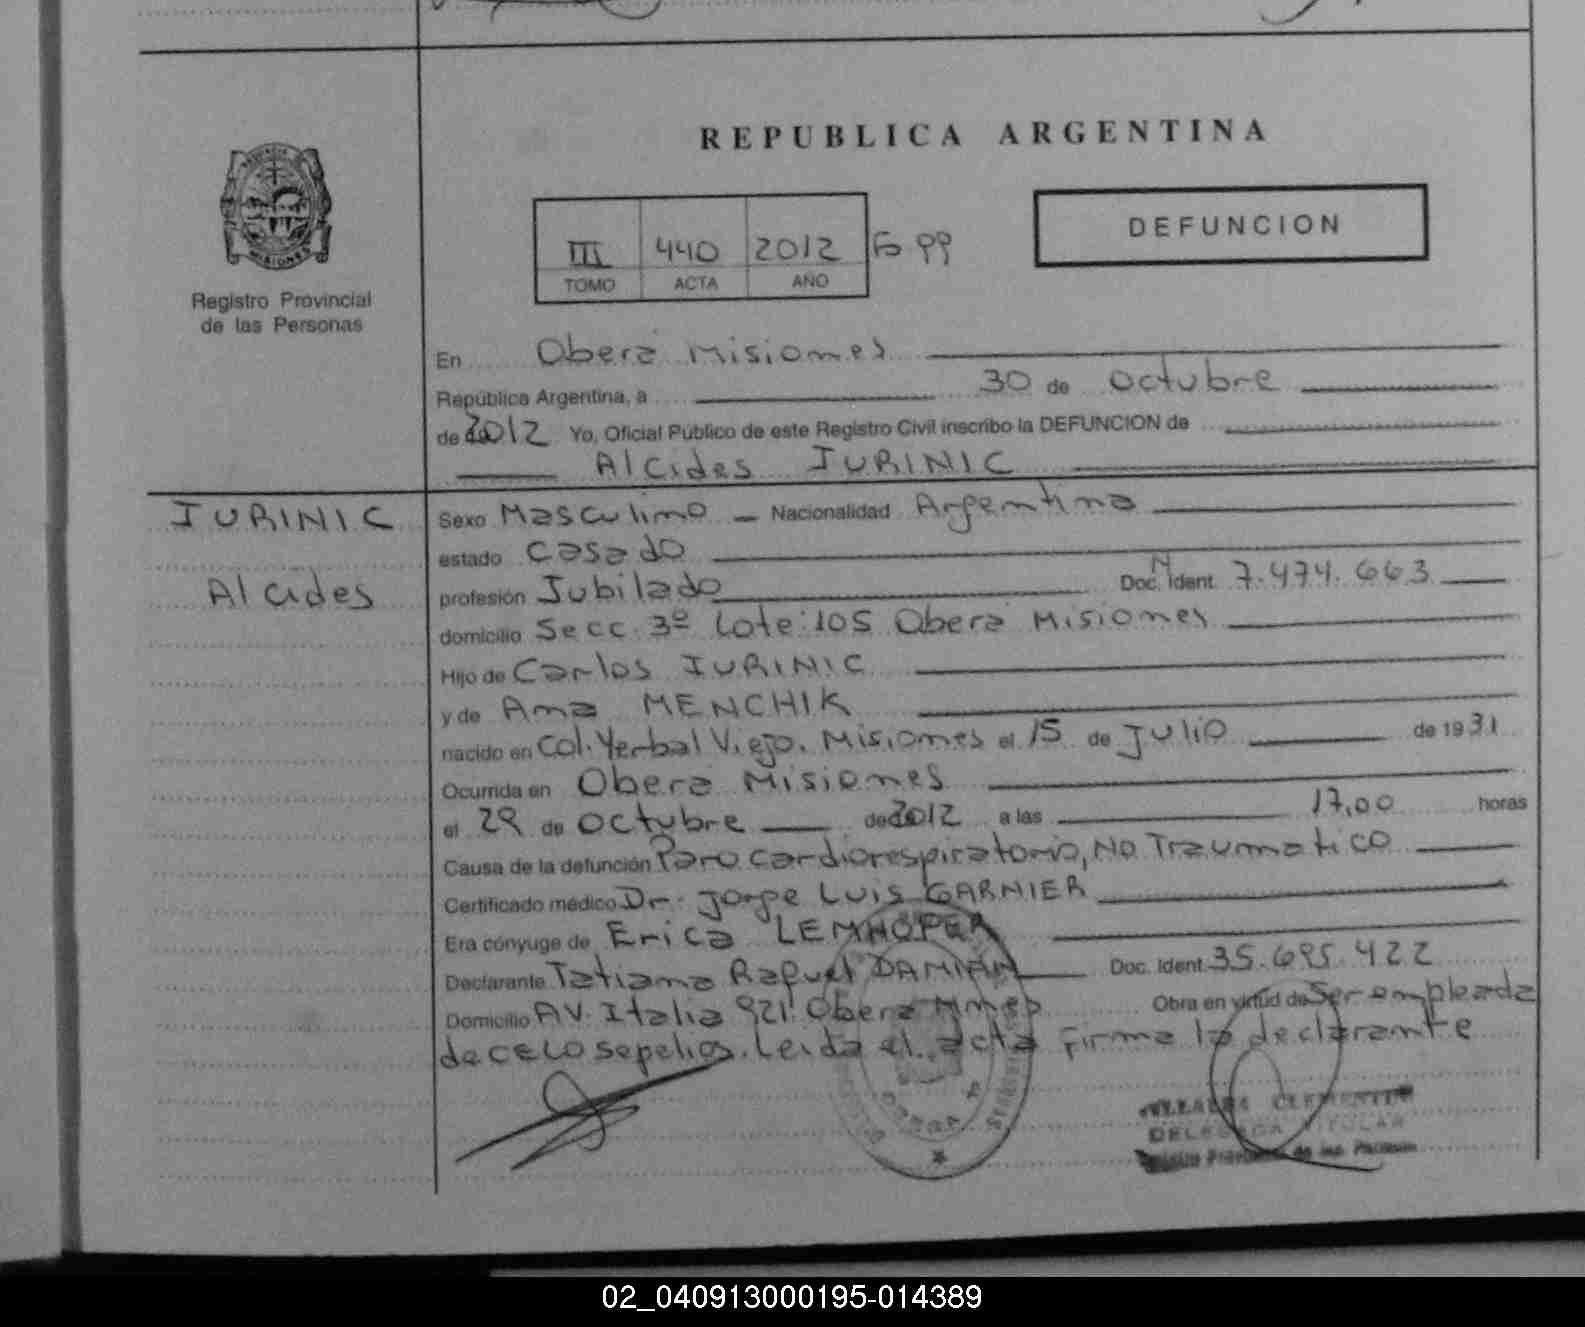 REPUBLICA ARGENTINA
DEFUNCION
III 440 2012 Fo 99
TOMO ACTA AÑO
MISIONES
Registro Provincial
de las Personas
En Obera Misiones
República Argentina, a 30 de octubre
de 2012 Yo, Oficial Público de este Registro Civil inscribo la DEFUNCION de
Alcides IURINIC
IURINIC
Alcides
Sexo Masculino Nacionalidad Argentina
estado casado
profesión Jubilado Doc. N Ident. 7.474.663
domicilio Secc. 3º Lote: 105 Obera Misiones
Hijo de Carlos IURINIC
y de Ana MENCHIK
nacido en Col. Yerbal Viejo. Misiones el 15 de Julio de 1931
Ocurrida en Obera Misiones
el 29 de octubre de 2012 a las 17,00 horas
Causa de la defunción Paro cardiorespiratorio, No Traumatico
Certificado médico Dr. Jorge Luis GARNIER
Era cónyuge de Erica LEMHOFER
Declarante Tatiana Raquel DAMIAN Doc. Ident. 35.695.422
Domicilio AV. Italia 921. Obera Mnes Obra en virtud de Ser empleada
de CELO sepelios. Leida el acta firma la declarante
CLEMENTINA
DELEGADA TITULAR
de las Personas
02_040913000195-014389